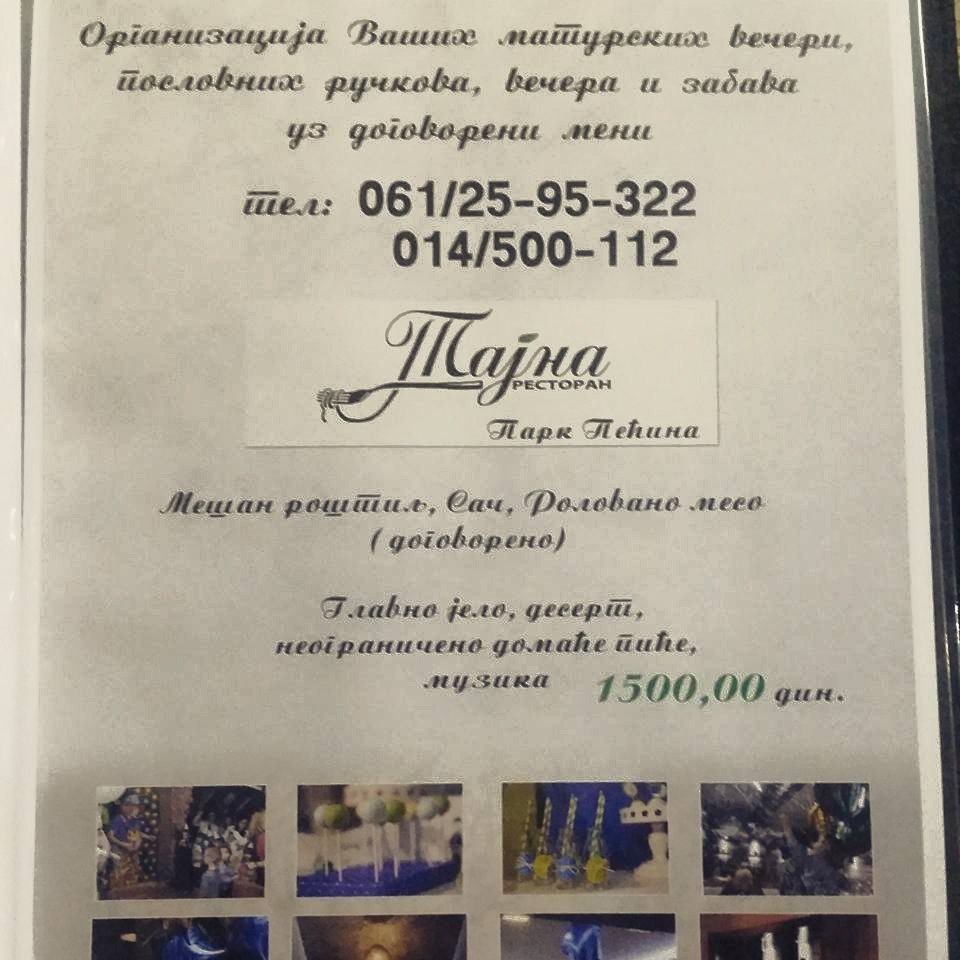 Организација Ваших матурских вечери,
пословних ручкова, вечера и забава
уз договорени мени
тел: 061/25-95-322
014/500-112
Тајна
РЕСТОРАН
Парк Пећина
Мешан роштиљ, Сач, Роловано месо
( договорено)
Главно јело, десерт,
неограничено домаће пиће,
музика 1500,00 дин.